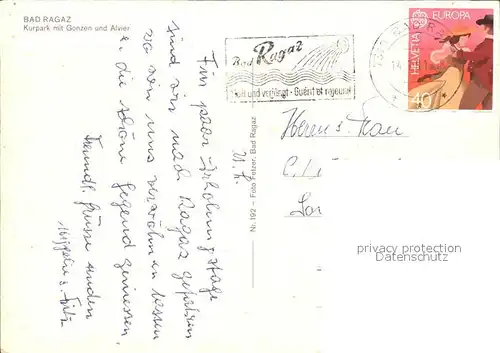 BAD RAGAZ
Kurpark mit Gonzen und Alvier
Bad Ragaz
heilt und verjüngt · Guérit et rajeunit
HELVETIA EUROPA
40
Für paar Erholungstage
sind wir nach Ragaz gefahren
wo wir uns verwöhnen lassen
u. die schöne Gegend geniessen.
Freundl. Grüsse senden
Fritz
Nr. 192 – Foto Fetzer, Bad Ragaz
Herrn u. Frau
privacy protection
Datenschutz